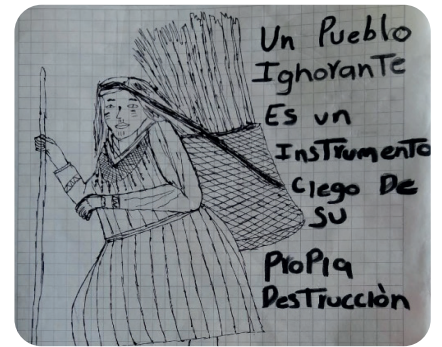 Un Pueblo
Ighorante
Es un
Instrumento
Ciego De
su
Propia
Destiucción